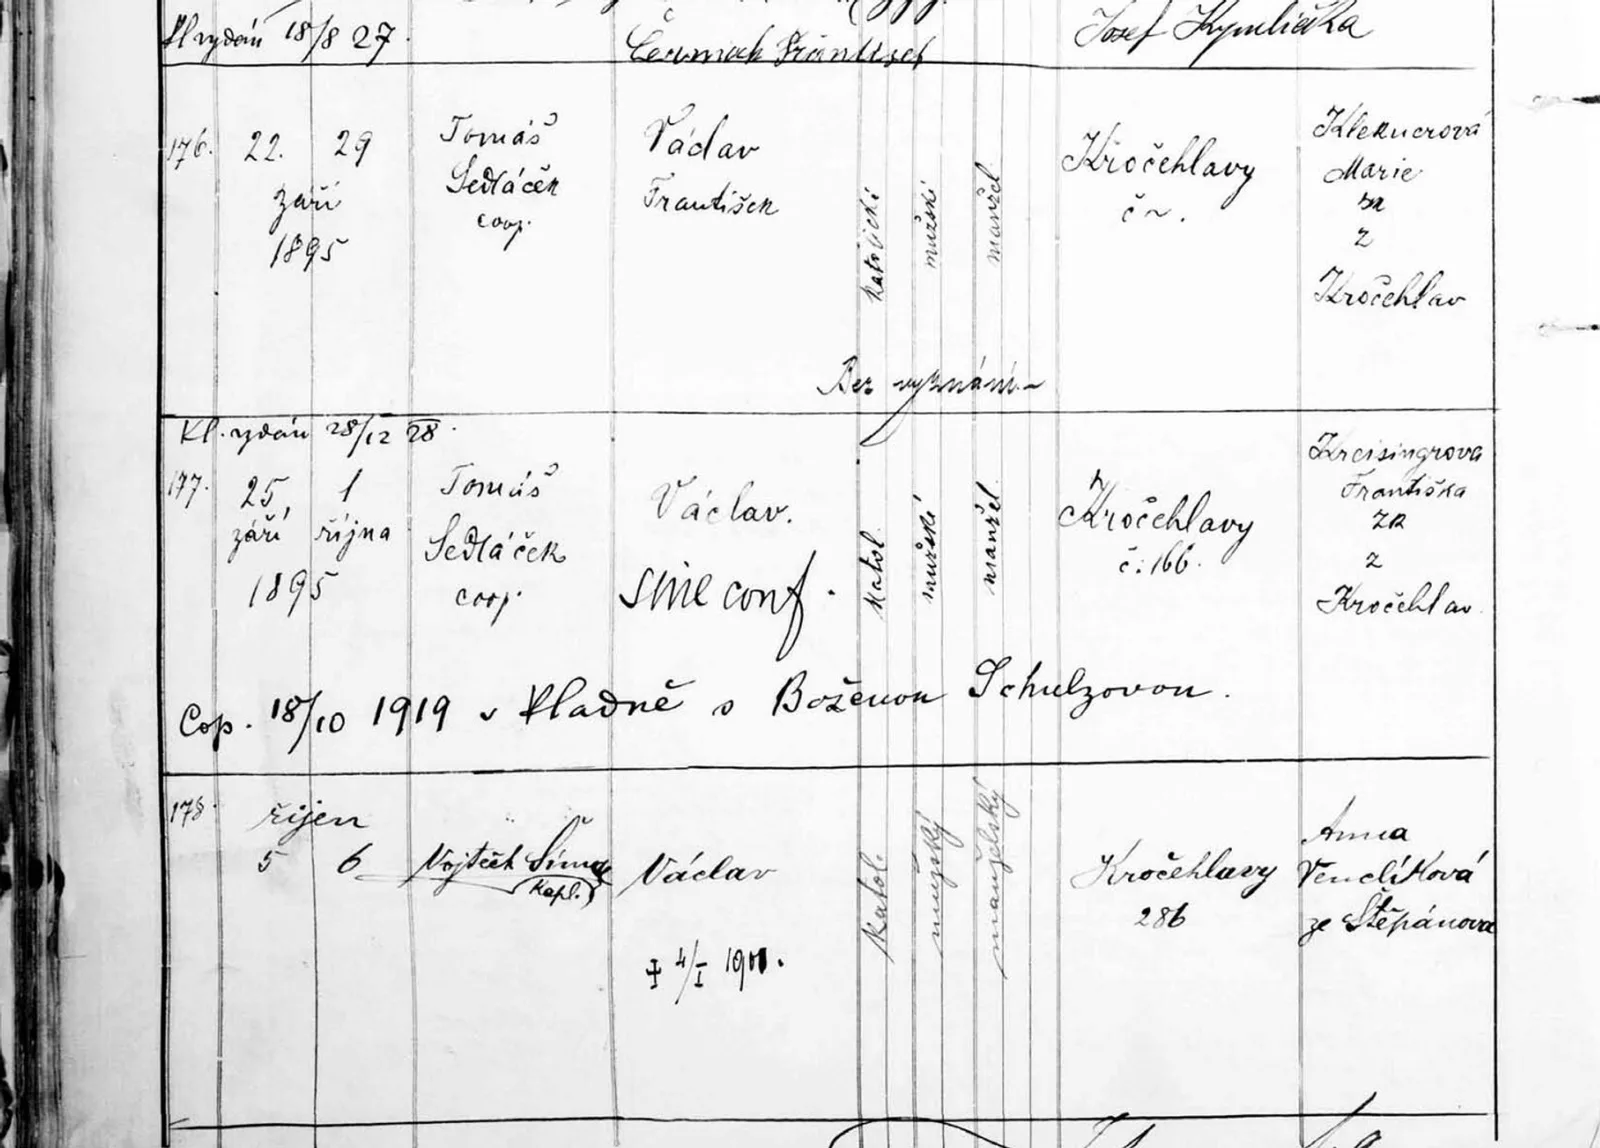 Kl. vydán 18/8 27.
Čermák František
Josef Kymlička
176. 22. 29
září
1895
Tomáš
Sedláček
coop.
Václav
František
katolické
mužské
manžel.
Kročehlavy
č ~.
Marie
z
Kročehlav
Bez vyznání
Kl. vydán 28/12 28.
177. 25 1
září října
1895
Tomáš
Sedláček
coop.
Václav.
sine conf.
katol.
mužské
manžel.
Kročehlavy
č. 166.
Kreisingrova
Františka
z
Kročehlav
Cop. 18/10 1919 v Kladně s Boženou Schulzovou.
178. říjen
5 6
Vojtěch
Kapl.
Václav
4/I
katol.
mužský
manželský
Kročehlavy
286
Anna
Vendlíková
ze Štěpánova